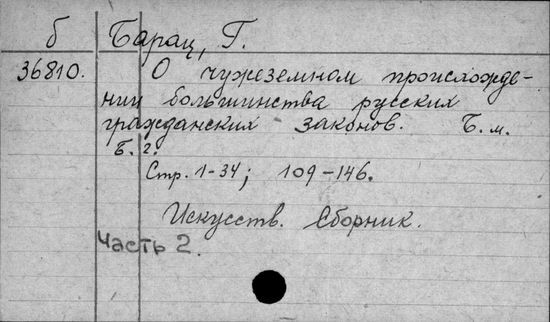 б Барац, Г.
36810. О чужеземном происхожде-
нии большинства русских
гражданских законов. Б. м.
Б. г.
Стр. 1-34; 109-146.
Искусств. Сборник.
Часть 2.